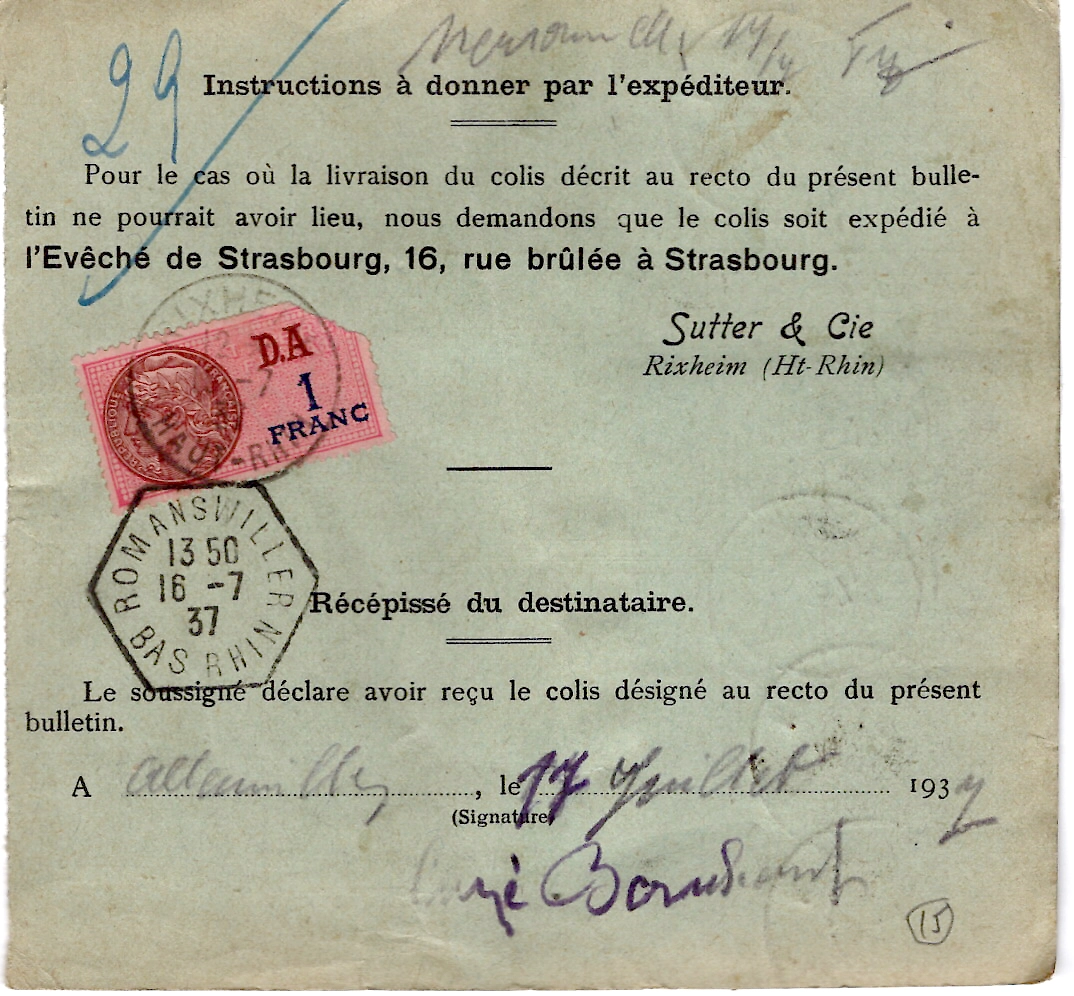 29
Instructions à donner par l'expéditeur.
Pour le cas où la livraison du colis décrit au recto du présent bulle-
tin ne pourrait avoir lieu, nous demandons que le colis soit expédié à
l'Evêché de Strasbourg, 16, rue brûlée à Strasbourg.
Sutter & Cie
Rixheim (Ht-Rhin)
D.A
1
FRANC
REPUBLIQUE FRANÇAISE
HAUT-RHIN
ROMANSWILLER
13 50
16 -7
37
BAS RHIN
Récépissé du destinataire.
Le soussigné déclare avoir reçu le colis désigné au recto du présent
bulletin.
A , le 17 Juillet 1937
(Signature)
Curé
15